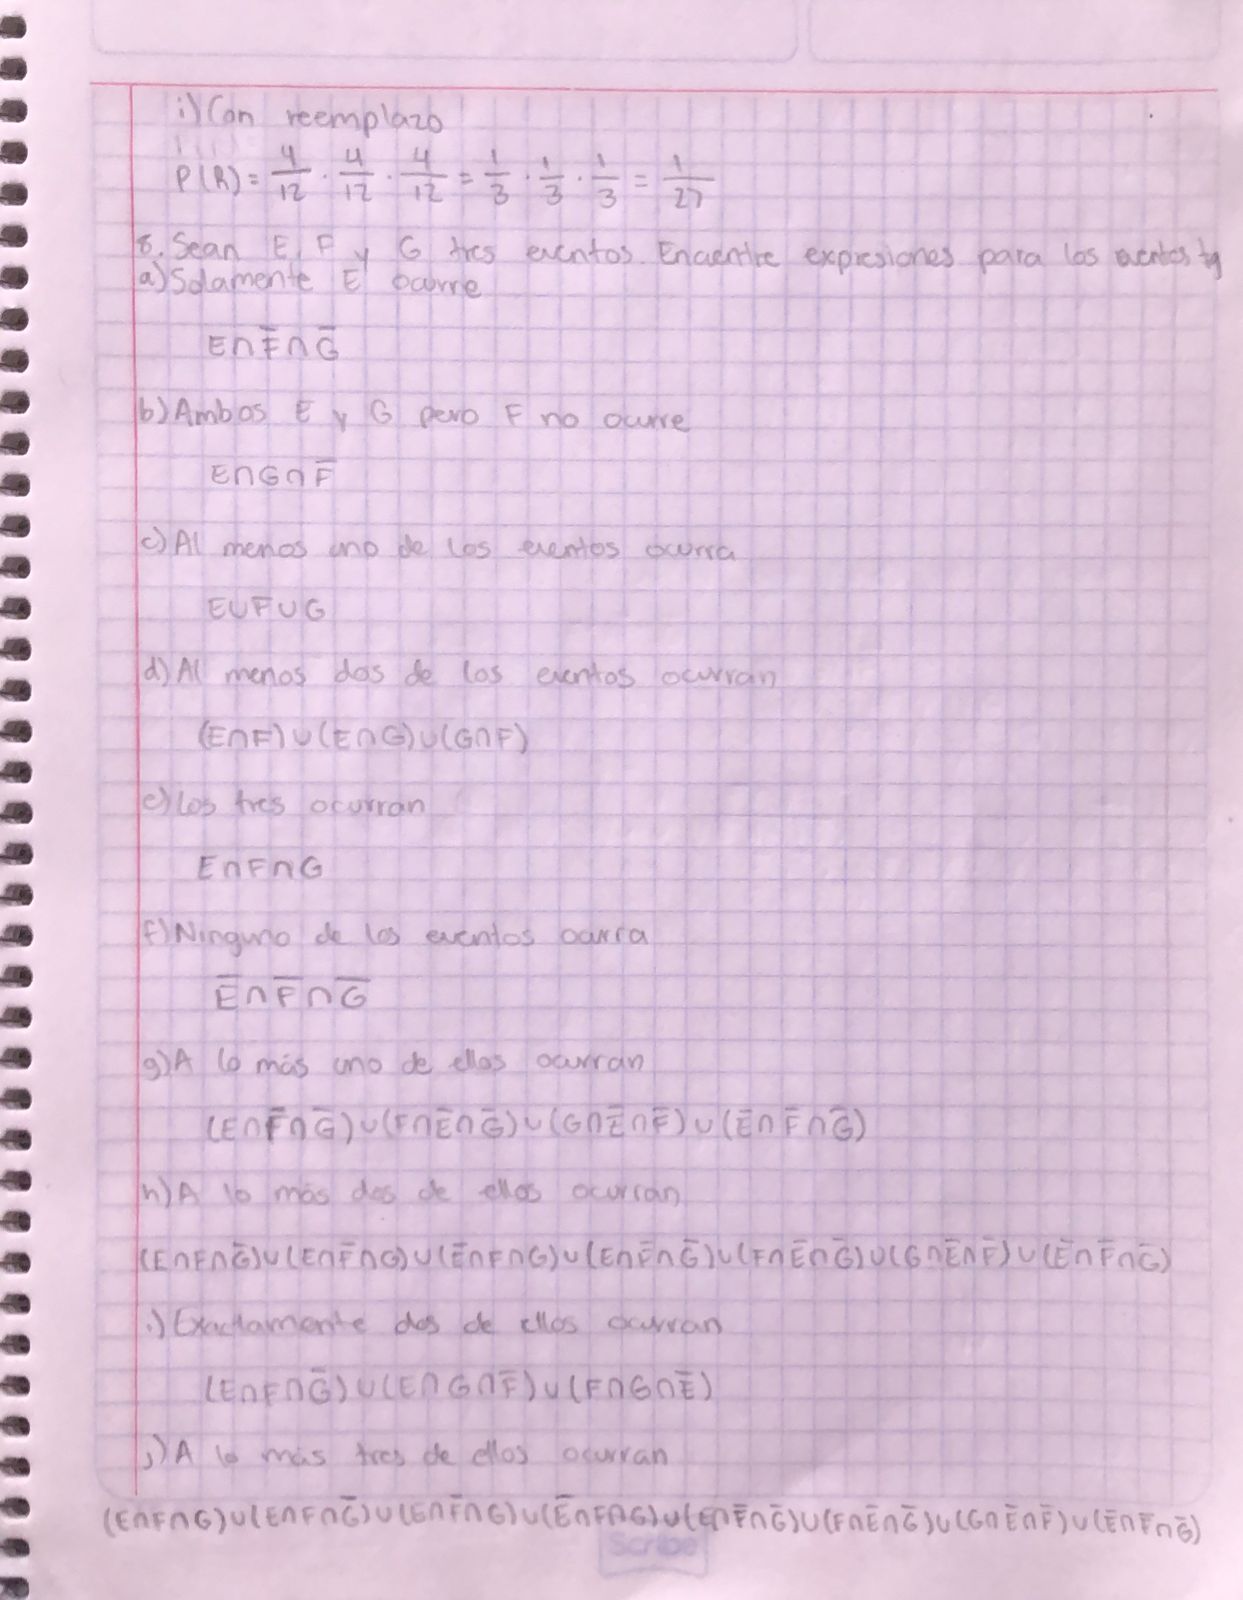 i) Con reemplazo
P(R) = 4/12 · 4/12 · 4/12 = 1/3 · 1/3 · 1/3 = 1/27
8. Sean E, F y G tres eventos. Encuentre expresiones para los eventos tq
a) Solamente E ocurre
E∩F̅∩G̅
b) Ambos E y G pero F no ocurre
E∩G∩F̅
c) Al menos uno de los eventos ocurra
E∪F∪G
d) Al menos dos de los eventos ocurran
(E∩F)∪(E∩G)∪(G∩F)
e) Los tres ocurran
E∩F∩G
f) Ninguno de los eventos ocurra
E̅∩F̅∩G̅
g) A lo más uno de ellos ocurran
(E∩F̅∩G̅)∪(F∩E̅∩G̅)∪(G∩E̅∩F̅)∪(E̅∩F̅∩G̅)
h) A lo más dos de ellos ocurran
(E∩F∩G̅)∪(E∩F̅∩G)∪(E̅∩F∩G)∪(E∩F̅∩G̅)∪(F∩E̅∩G̅)∪(G∩E̅∩F̅)∪(E̅∩F̅∩G̅)
i) Exactamente dos de ellos ocurran
(E∩F∩G̅)∪(E∩G∩F̅)∪(F∩G∩E̅)
j) A lo más tres de ellos ocurran
(E∩F∩G)∪(E∩F∩G̅)∪(E∩F̅∩G)∪(E̅∩F∩G)∪(E∩F̅∩G̅)∪(F∩E̅∩G̅)∪(G∩E̅∩F̅)∪(E̅∩F̅∩G̅)
Scribe